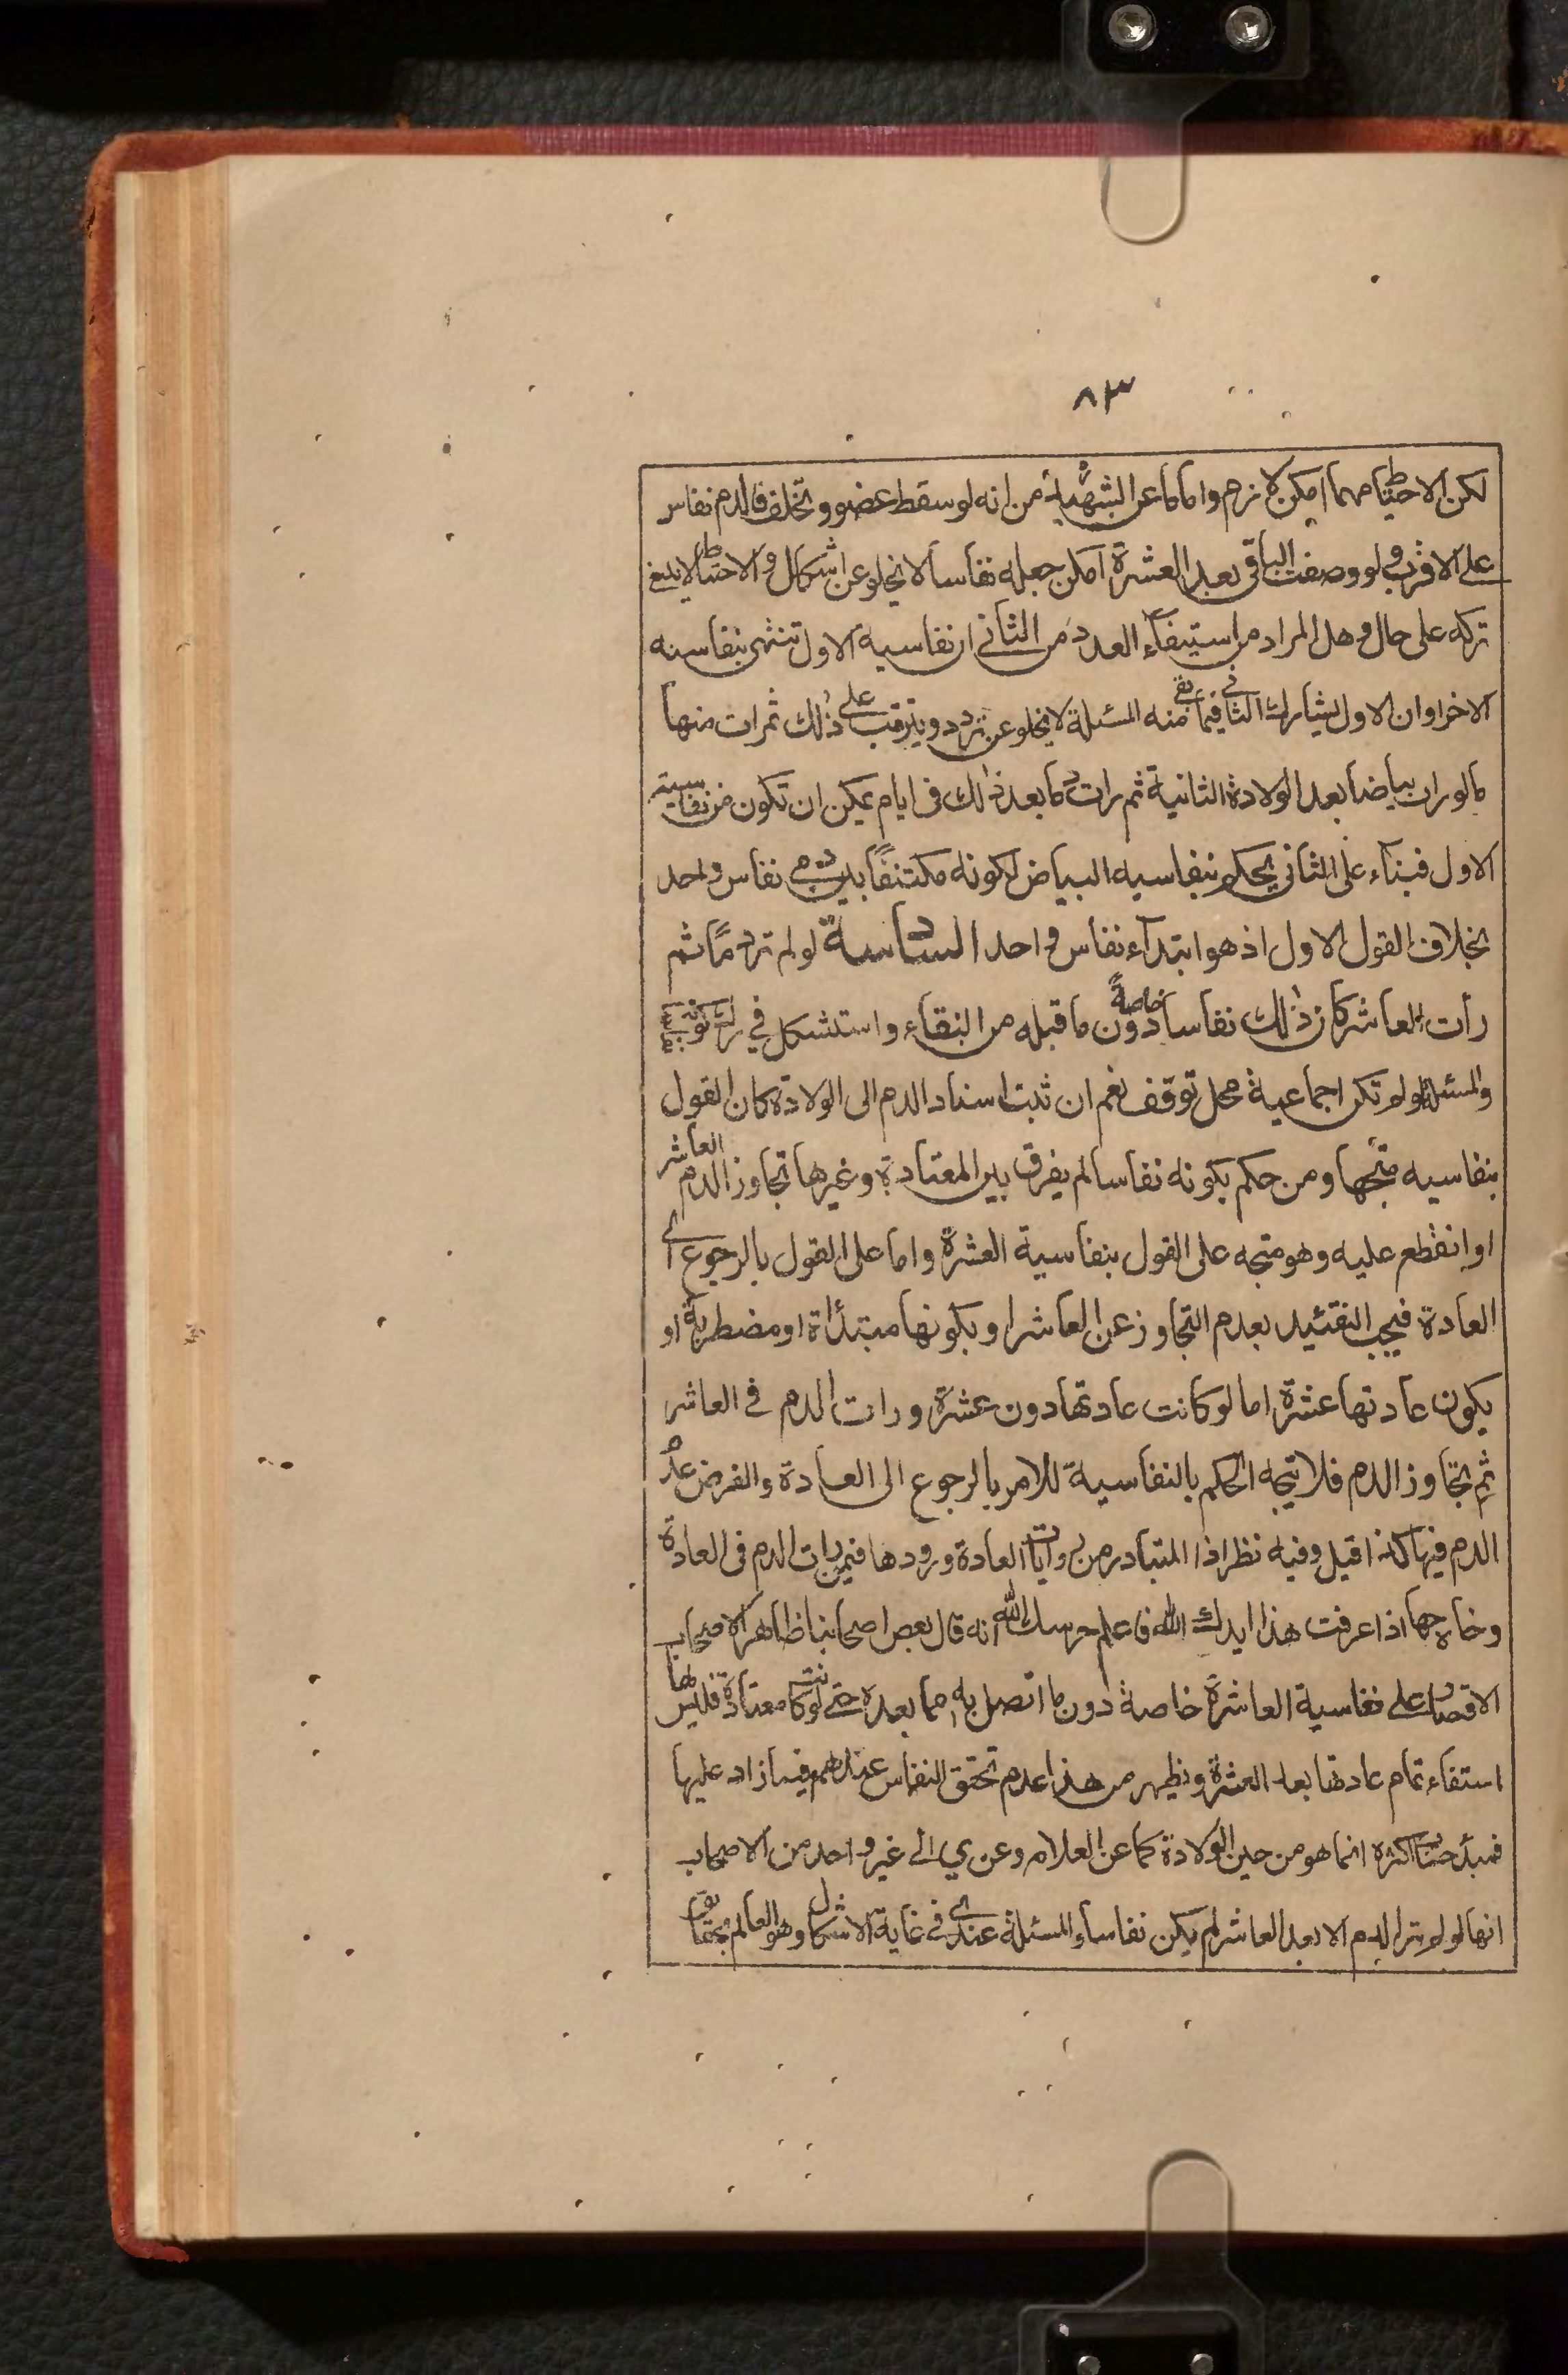 ٨٣
لكن الاحتياط مهما امكن لازم واما ما عن الشهيد من انه لو سقط عضو وتخلف فالدم نفاس
على الاقرب ولو وضعت الباقى بعد العشرة امكن جعله نفاسا لا يخلو عن اشكال والاحتياط لا ينبغى
تركه على حال وهل المراد من استيفاء العدد من الثانى ان نفاسية الاول تنتهى بنفاسه
الاخر او ان الاول يشارك الثانى فيما بقى منه المسئلة لا يخلو عن تردد ويترتب على ذلك ثمرات منها
ما لو رات بياضا بعد الولادة الثانية ثم رات دما بعد ذلك فى ايام يمكن ان تكون من نفاسية
الاول فبناء على الثانى يحكم بنفاسيه البياض لكونه مكتنفا بين دمى نفاس واحد
بخلاف القول الاول اذ هو ابتداء نفاس واحد السادسة لو لم تر دما ثم
رأت العاشر كان ذلك نفاسا خاصة دون ما قبله من النقاء واستشكل فى
والمسئلة لو لم تكن اجماعية محل توقف نعم ان ثبت اسناد الدم الى الولادة كان القول
بنفاسيه متجها ومن حكم بكونه نفاسا لم يفرق بين المعتادة وغيرها تجاوز الدم العاشر
او انقطع عليه وهو متجه على القول بنفاسية العشرة واما على القول بالرجوع الى
العادة فيجب التقئيد بعدم التجاوز عن العاشر او بكونها مبتدأة او مضطربة او
يكون عادتها عشرة اما لو كانت عادتها دون عشرة ورات الدم فى العاشر
ثم تجاوز الدم فلا يتجه الحكم بالنفاسية للامر بالرجوع الى العادة والفرض عدم
الدم فيها كذا قيل وفيه نظر اذ المتبادر من روايات العادة ورودها فيمن رات الدم فى العادة
وخارجها اذا عرفت هذا ايدك الله فاعلم حرسك الله انه قال بعض اصحابنا ظاهر الاصحاب
الاقتصار على نفاسية العاشرة خاصة دون ما اتصل به مما بعده حتى لو كانت معتادة فليس لها
استفاء تمام عادتها بعد العشرة ويظهر من هذا عدم تحقق النفاس عندهم فيما زاد عليها
فمبدء حساب اكثره انما هو من حين الولادة كما عن العلام وعن ي الى غير واحد من الاصحاب
انها لو لم تر الدم الا بعد العاشر لم يكن نفاسا والمسئلة عندى فى غاية الاشكال وهو العالم